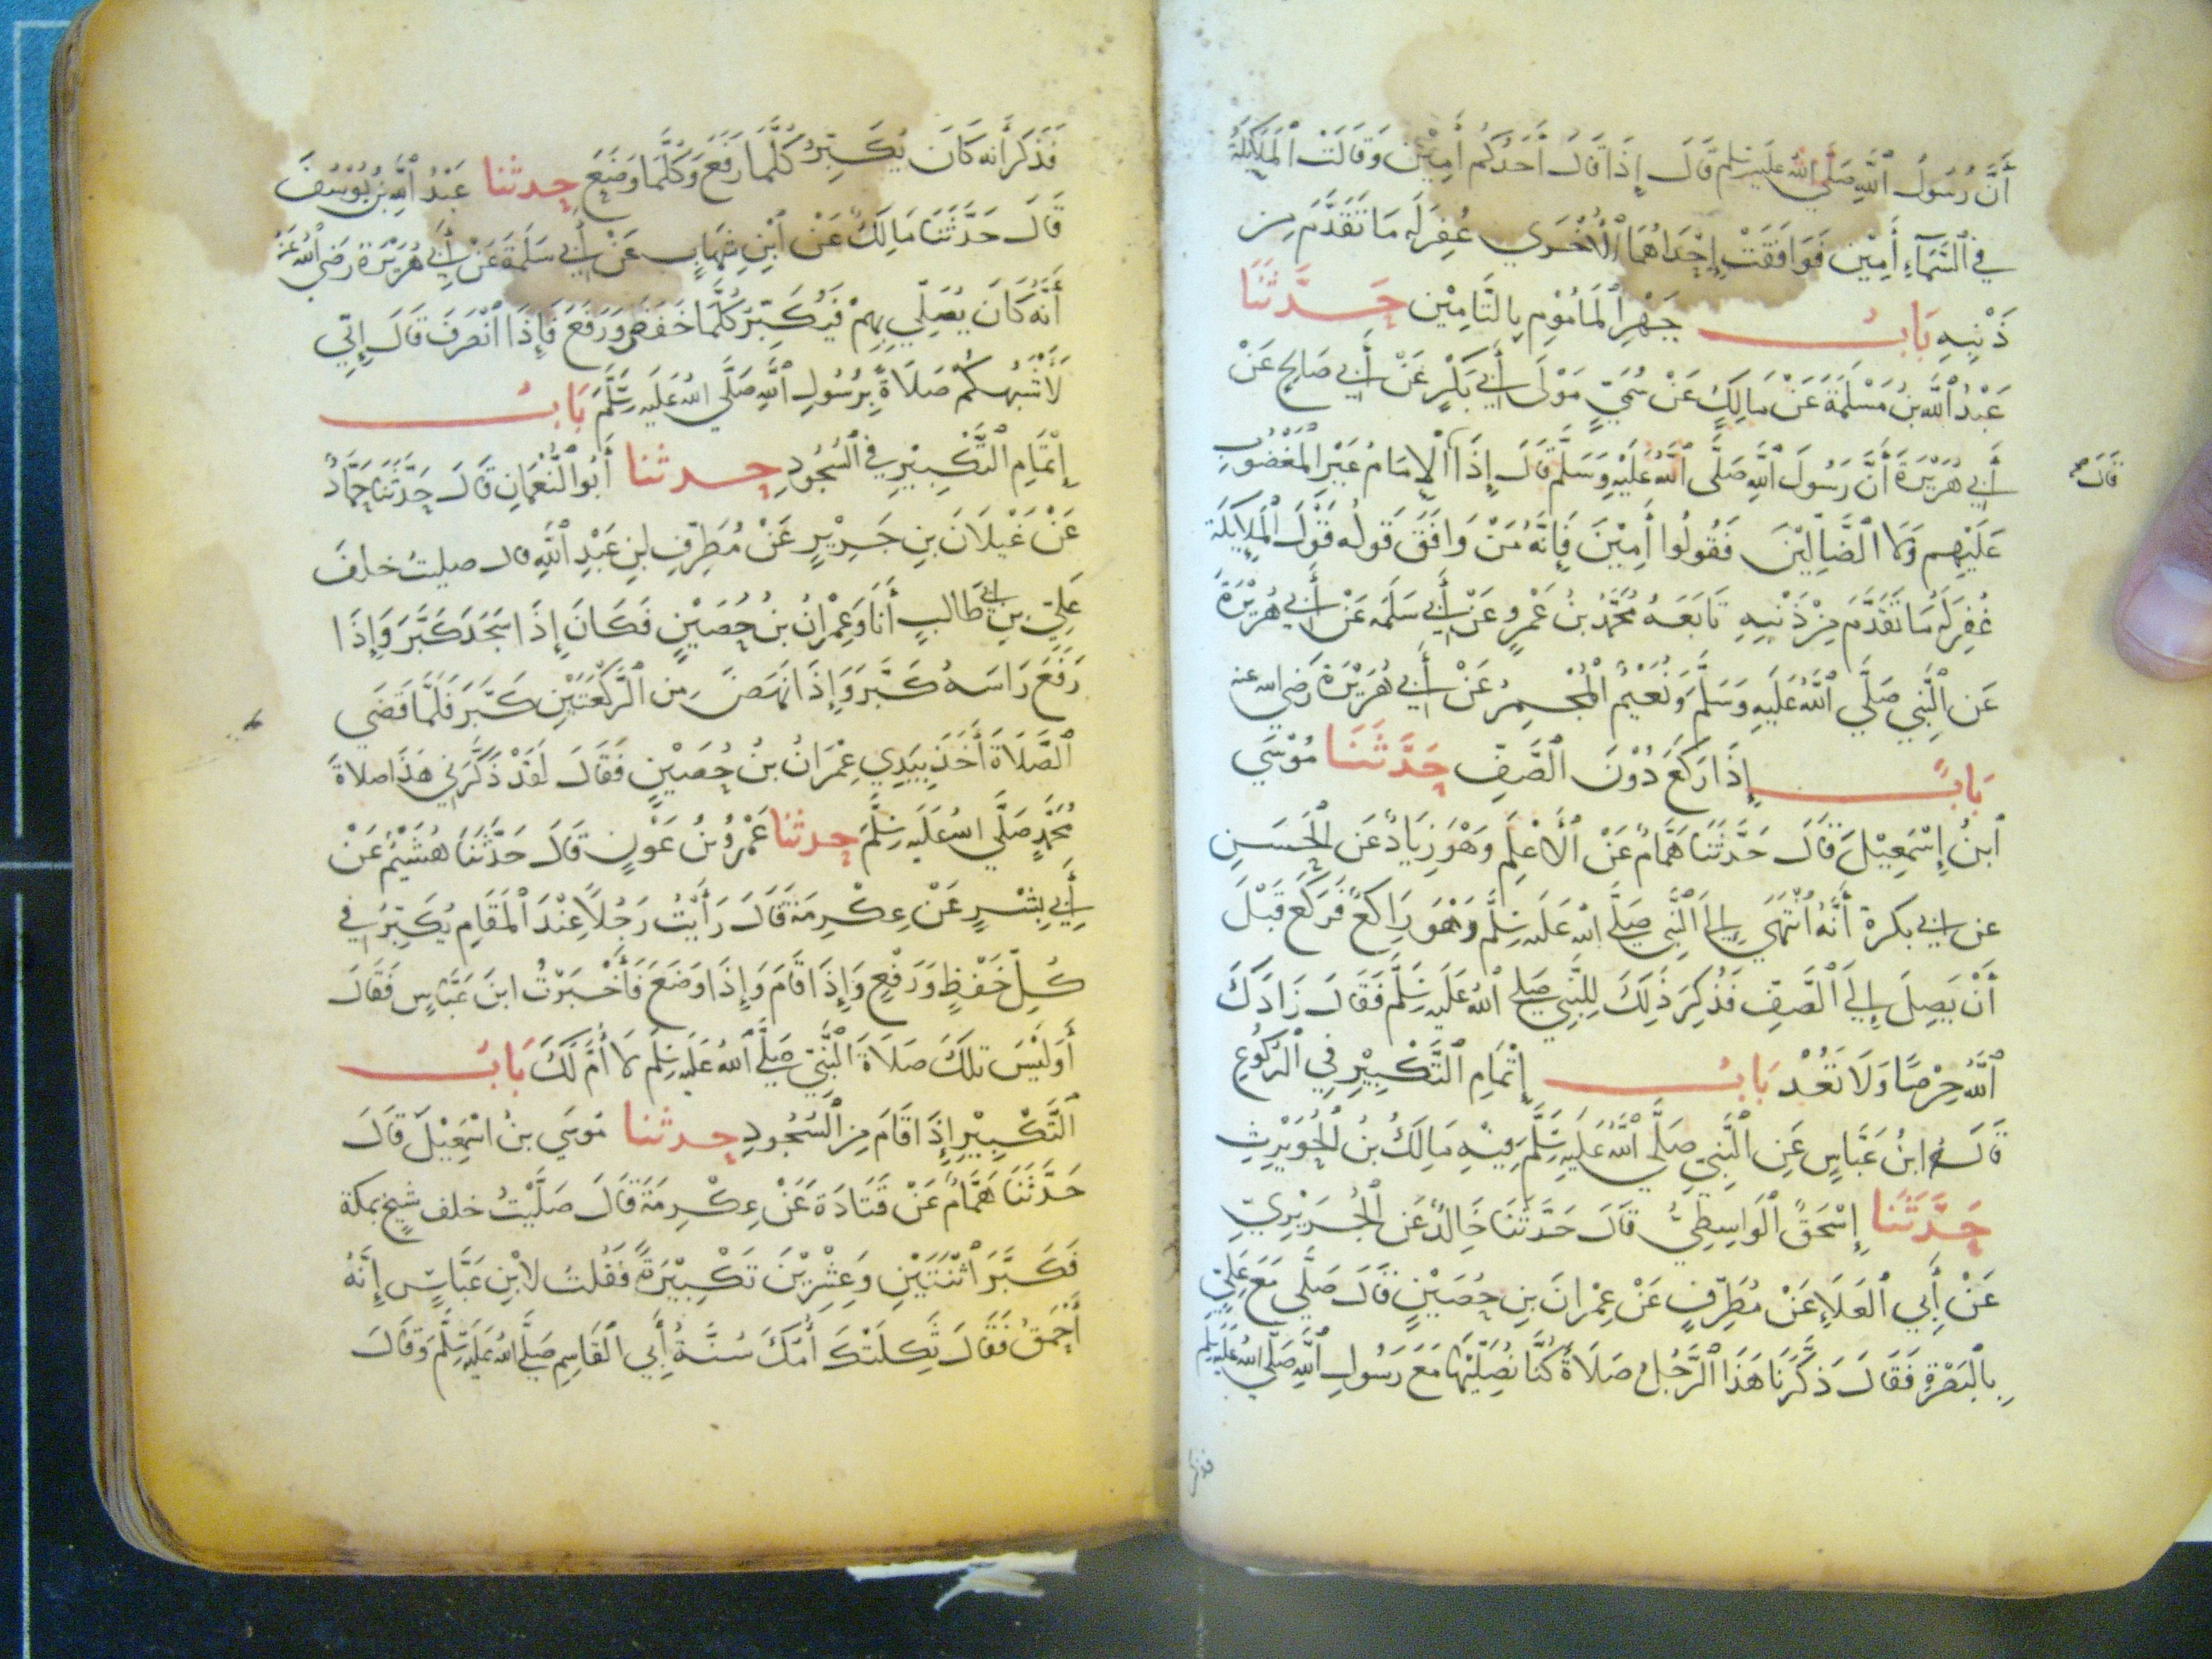 أَنَّ رَسُولَ ٱللَّهِ صَلَّى ٱللَّه عليه وسلم قَالَ إِذَا قَالَ أَحَدُكُم أَمِيْنَ وَقَالَتْ ٱلْمَلَائِكَةُ
في ٱلسَّمَآءِ أَمِيْنَ فَوَافَقَتْ إِحْدَاهُمَا ٱلْأُخْرَى غُفِرَلَه مَا تَقَدَّمَ مِنْ
ذَنْبِهِ بَابُ جَهْرِ ٱلمَامُوْمِ بِالتَّامِيْن حَدَّثَنَا
عَبْدُ ٱللَّهِ بنُ مَسْلَمَةَ عَنْ مَالِكٍ عَنْ سُمَيٍّ مَوْلَى أَبِي بَكْرٍ عَنْ أَبِي صَالِحٍ عَنْ
أَبِي هُرَيْرَةَ أَنَّ رَسُولَ ٱللَّهِ صَلَّى ٱللَّهُ عَلَيْهِ وَسَلَّم قَالَ إِذَا ٱلْإِمَامُ غَيْرِ ٱلْمَغْضُوْبِ
قَالَ صح
عَلَيْهِم وَلَا ٱلضَّالِّيْنَ فَقُولُوا أَمِيْنَ فَإِنَّهُ مَنْ وَافَقَ قَولُه قَوْلَ ٱلْمَلَائِكَة
غُفِرَ لَهُ مَا تَقَدَّمَ مِنْ ذَنْبِهِ تَابَعَهُ مُحَمَّدُ بْنُ عَمْرٍو عَنْ أَبِي سَلَمَه عَنْ أَبِي هُرَيْرَةَ
عَن ٱلنَّبِي صَلَّى ٱللَّهُ عَلَيهِ وَسَلَّم وَنُعَيْمُ ٱلْمُجْمِرُ عَنْ أَبِي هُرَيْرَةَ رضي الله عنه
بَابُ إِذَا رَكَعَ دُوْنَ ٱلصَّفِّ حَدَّثَنَا مُوْسَى
ٱبنُ إِسْمَعِيْلَ قَالَ حَدَّثَنَا هَمَّامُ عَنْ ٱلْأَعْلَمِ وَهْوَ زِيَادُ عَن ٱلْحَسَنِ
عن ابي بكرة أَنَّهُ ٱنْتَهَى إِلَى ٱلنَّبِي صَلَّى ٱللَّه عَلَيه وسَلَّم وَهْوَ رَاكِعُ فَرَكَعَ قَبْلَ
أَنْ يَصِلَ إِلَى ٱلصَّفِّ فَذُكِرَ ذَلِكَ لِلنَّبِي صَلَّى ٱللَّهُ عَلَيه وسَلَّم فَقَالَ زَادَكَ
ٱللَّهُ حِرْصًا وَلَا تَعُدْ بَابُ إِتْمَامِ ٱلتَّكْبِيْرِ فِي ٱلرُّكُوعِ
قَالَهُ ابنُ عَبَّاسٍ عَنِ ٱلنَّبِيِ صَلَّى ٱللَّهُ عَلَيه وسَلَّم فِيْهِ مَالِكُ بنُ ٱلْحُوَيْرِثِ
حَدَّثَنَا إِسْحَقُ ٱلْوَاسِطِيُّ قَالَ حَدَّثَنَا خَالِدُ عَن ٱلْجُرَيْرِيِّ
عَنْ أَبِي ٱلْعَلَاءِ عَنْ مُطَرِّفٍ عَنْ عِمْرَانَ بنِ حُصَيْنٍ قَالَ صَلَّى مَعَ عَلِيٍّ
بِالْبَصْرَةِ فَقَالَ ذَكَّرَنَا هَذَا ٱلرَّجُلُ صَلَاةً كُنَّا نُصَلِّيْهَا مَعَ رَسُولِ ٱللَّهِ صَلَّى اللهُ عَلَيه وسلم
فَذَكَرَ أَنه كَانَ يُكَبِّرُ كُلَّمَا رَفَعَ وَكُلَّمَا وَضَعَ حدثنا عَبْدُ ٱللَّهِ بنُ يُوْسُفَ
قَالَ حَدَّثَنَا مَالِكُ عَنْ ٱبْنِ شِهَابٍ عَنْ أَبِي سَلَمَةَ عَنْ أَبِي هُرَيْرَةَ رَضِيَ ٱللَّهُ عَنْهُ
أَنَّهُ كَانَ يُصَلِّي بِهِمْ فَيُكَبِّرُ كُلَّمَا خَفَضَ وَرَفَعَ فَإِذَا ٱنْصَرَفَ قَالَ إِنِّي
لَأَشْبَهُكُم صَلَاةً بِرَسُولِ ٱللَّهِ صَلَّى اللهُ عَلَيه وسَلَّمَ بَابُ
إِتْمَامِ ٱلتَّكْبِيْرِ فِي ٱلسُّجُودِ حدثنا أَبُو ٱلنُّعْمَانِ قَالَ حَدَّثَنَا حَمَّادُ
عَنْ غَيْلَانَ بنِ جَرِيْرٍ عَنْ مُطَرِّفِ بنِ عَبْدِ ٱللَّهِ قال صليتُ خلفَ
عَلِيِّ بنِ أبي طَالبٍ أَنَا وَعِمْرَانُ بنُ حُصَيْنٍ فَكَانَ إِذَا سَجَدَ كَبَّرَ وَإِذَا
رَفَعَ رَاسَهُ كَبَّرَ وَإِذَا نَهَضَ مِن ٱلرَّكْعَتَيْنِ كَبَّرَ فَلَمَّا قَضَى
ٱلصَّلَاةَ أَخَذَ بِيَدِي عِمْرَانُ بنُ حُصَيْنٍ فَقَالَ لَقَدْ ذَكَّرَنِي هَذَا صلاةَ
مُحَمَّدٍ صَلَّى اللهُ عَلَيه وسَلَّمَ حدثنا عَمْرُو بنُ عَوْنٍ قَالَ حَدَّثَنَا هُشَيْمُ عَنْ
أَبِي بِشْرٍ عَنْ عِكْرِمَةَ قَالَ رَأَيْتُ رَجُلًا عِنْدَ ٱلْمَقَامِ يُكَبِّرُ فِي
كُلِّ خَفْضٍ وَرَفْعٍ وَإِذَا قَامَ وَإِذَا وَضَعَ فَأَخْبَرْتُ ابنَ عَبَّاسٍ فَقَالَ
أَوَلَيْسَ تلكَ صَلَاةَ ٱلنَّبِيِّ صَلَّى ٱللَّهُ عَلَيه وسَلَّم لَا أُمَّ لَكَ بَابُ
ٱلتَّكْبِيْرِ إِذَا قَامَ مِنَ ٱلسُّجُودِ حدثنا مُوسَى بنُ اسْمَعِيْلَ قَالَ
حَدَّثَنَا هَمَّامُ عَنْ قَتَادَةَ عَنْ عِكْرِمَةَ قَالَ صَلَّيْتُ خلف شيخٍ بمكة
فَكَبَّرَ ٱثْنَتَيْنِ وَعِشْرِيْنَ تَكْبِيْرَةً فَقُلتُ لابْنِ عَبَّاسٍ إِنَّهُ
أَحْمَقُ فَقَالَ ثَكِلَتْكَ أُمُّكَ سُنَّةُ أَبِي ٱلْقَاسِمِ صَلَّى اللهُ عَلَيه وسَلَّمَ وَقَالَ